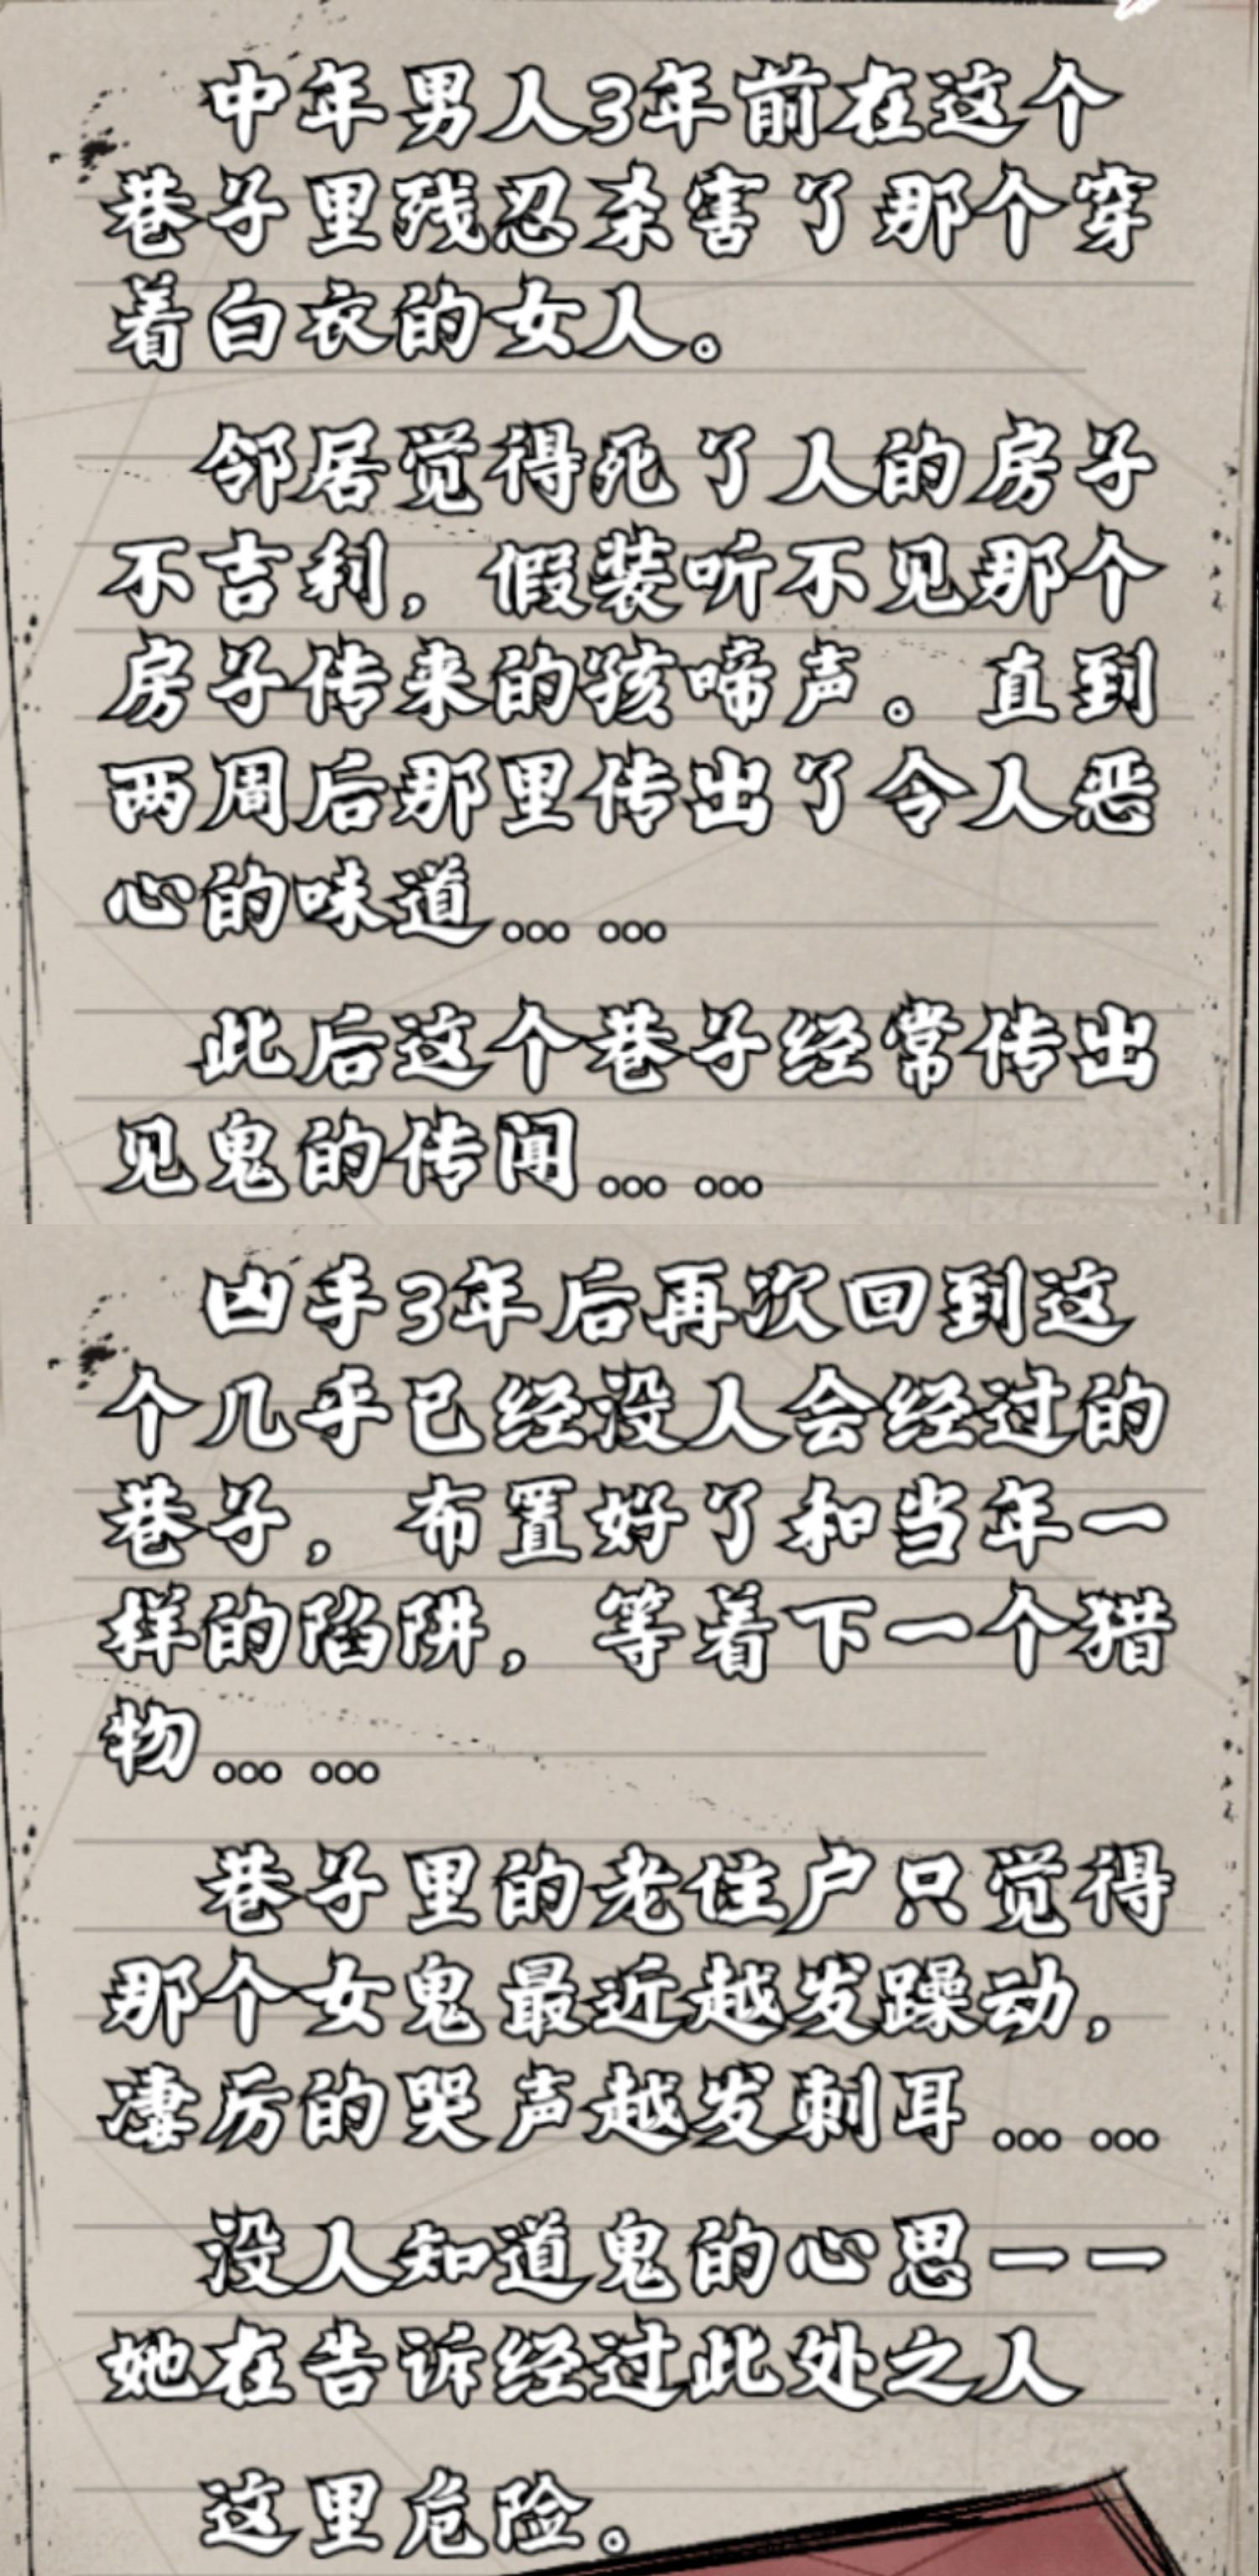 中年男人3年前在这个
巷子里残忍杀害了那个穿
着白衣的女人。
邻居觉得死了人的房子
不吉利，假装听不见那个
房子传来的孩啼声。直到
两周后那里传出了令人恶
心的味道... ...
此后这个巷子经常传出
见鬼的传闻... ...
凶手3年后再次回到这
个几乎已经没人会经过的
巷子，布置好了和当年一
样的陷阱，等着下一个猎
物... ...
巷子里的老住户只觉得
那个女鬼最近越发躁动，
凄厉的哭声越发刺耳... ...
没人知道鬼的心思一一
她在告诉经过此处之人
这里危险。